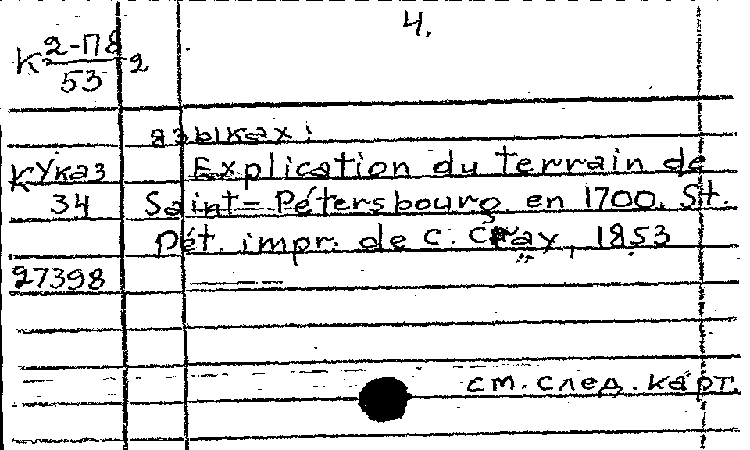 4.
К 2-П8/53 2
языках:
КУказ Explication du terrain de
34 Saint-Pétersbourg en 1700. St.
Pét. impr. de C. Cray, 1853
27398
см. след. карт.